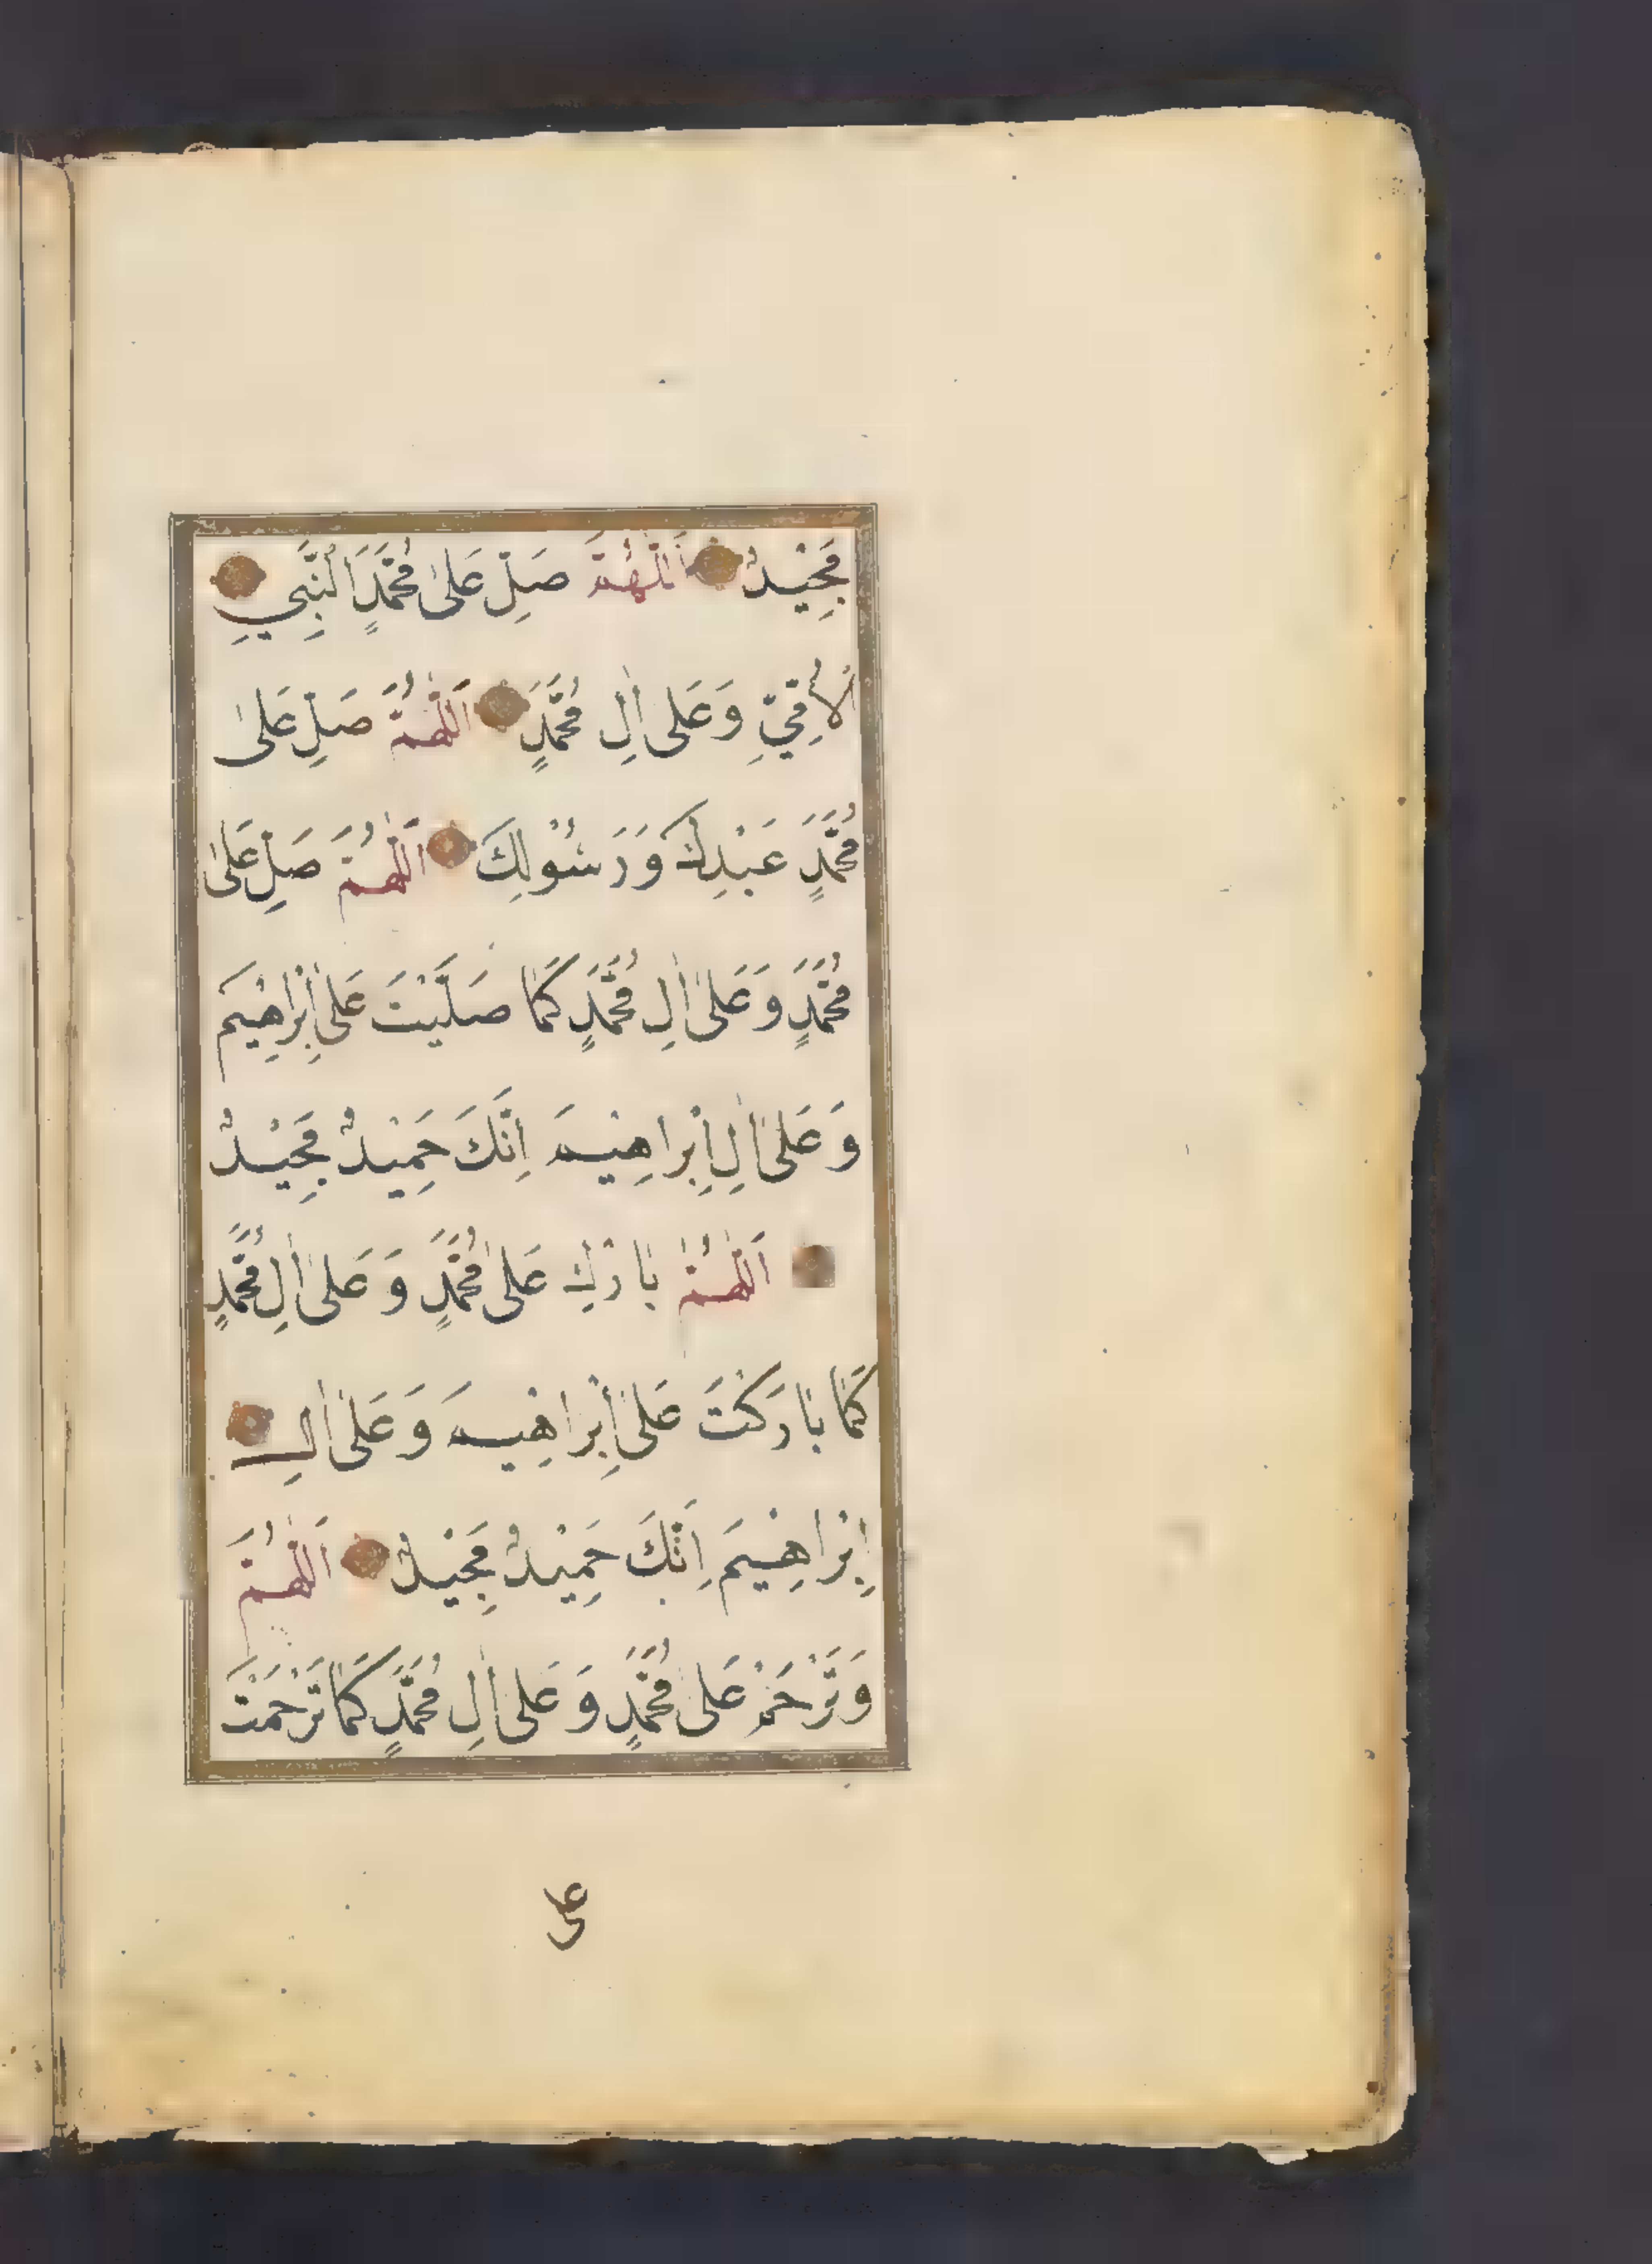 مَجِيْدٌ اَللّٰهُمَّ صَلِّ عَلىٰ مُحَمَّدٍ اَلنَّبِيِّ
الْأُمِّيِّ وَعَلىٰ اٰلِ مُحَمَّدٍ اَللّٰهُمَّ صَلِّ عَلىٰ
مُحَمَّدٍ عَبْدِكَ وَرَسُوْلِكَ اَللّٰهُمَّ صَلِّ عَلىٰ
مُحَمَّدٍ وَعَلىٰ اٰلِ مُحَمَّدٍ كَمَا صَلَّيْتَ عَلىٰ اِبْرَاهِيْمَ
وَعَلىٰ اٰلِ اِبْرَاهِيْمَ اِنَّكَ حَمِيْدٌ مَجِيْدٌ
اَللّٰهُمَّ بَارِكْ عَلىٰ مُحَمَّدٍ وَعَلىٰ اٰلِ مُحَمَّدٍ
كَمَا بَارَكْتَ عَلىٰ اِبْرَاهِيْمَ وَعَلىٰ اٰلِ
اِبْرَاهِيْمَ اِنَّكَ حَمِيْدٌ مَجِيْدٌ اَللّٰهُمَّ
وَتَرَحَّمْ عَلىٰ مُحَمَّدٍ وَعَلىٰ اٰلِ مُحَمَّدٍ كَمَا تَرَحَّمْتَ
على